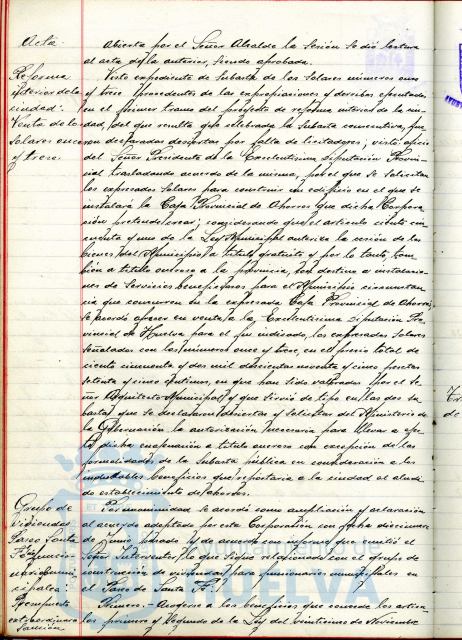 Acta.
Abierta por el Señor Alcalde la sesión se dió lectura
al acta de la anterior, siendo aprobada.
Reforma
interior de la
ciudad:
Venta de los
solares once
y trece.
Visto expediente de subasta de los solares números once
y trece procedentes de las expropiaciones y derribos ejecutados
en el primer tramo del proyecto de reforma interior de la ciu-
dad, del que resulta que celebrada la subasta consecutiva, fue-
ron declaradas desiertas por falta de licitadores; visto oficio
del Señor Presidente de la Excelentísima Diputación Provin-
cial trasladando acuerdo de la misma, por el que se solicitan
los expresados solares para construir un edificio en el que se
instalará la Caja Provincial de Ahorros que dicha Corpora-
ción pretende crear; considerando que el artículo ciento cin-
cuenta y uno de la Ley Municipal autoriza la cesión de los
bienes del Municipio a título gratuito y por lo tanto, tam-
bién a título oneroso a la provincia, con destino a instalacio-
nes de servicios beneficiosos para el Municipio circunstan-
cia que concurren en la expresada Caja Provincial de Ahorros,
se acordó ofrecer en venta, a la Excelentísima Diputación Pro-
vincial de Huelva para el fin indicado, los expresados solares
señalados con los números once y trece, en el precio total de
ciento cincuenta y dos mil doscientas noventa y cinco pesetas
setenta y cinco céntimos, en que han sido valorados por el Se-
ñor Arquitecto Municipal y que sirvió de tipo en las dos su-
bastas que se declararon desiertas y solicitar del Ministerio de
la Gobernación la autorización necesaria para llevar a efec-
to dicha enajenación a título oneroso con excepción de las
formalidades de la subasta pública en consideración a los
indudables beneficios que reportaría a la ciudad el aludi-
do establecimiento de ahorros.
Grupo de
viviendas
Paseo Santa
Fé
funcio-
narios muni-
cipales.
Presupuesto
extraordinario
Por unanimidad se acordó como ampliación y aclaración
al acuerdo adoptado por esta Corporación con fecha diecinueve
de Junio pasado y de acuerdo con informe que emitió el
Señor Interventor, lo que sigue relacionado con el grupo de
construcción de viviendas para funcionarios municipales en
el Paseo de Santa Fé:
Primero.- Acogerse a los beneficios que concede los artícu-
los primero y segundo de la Ley del veinticinco de Noviembre
HUELVA